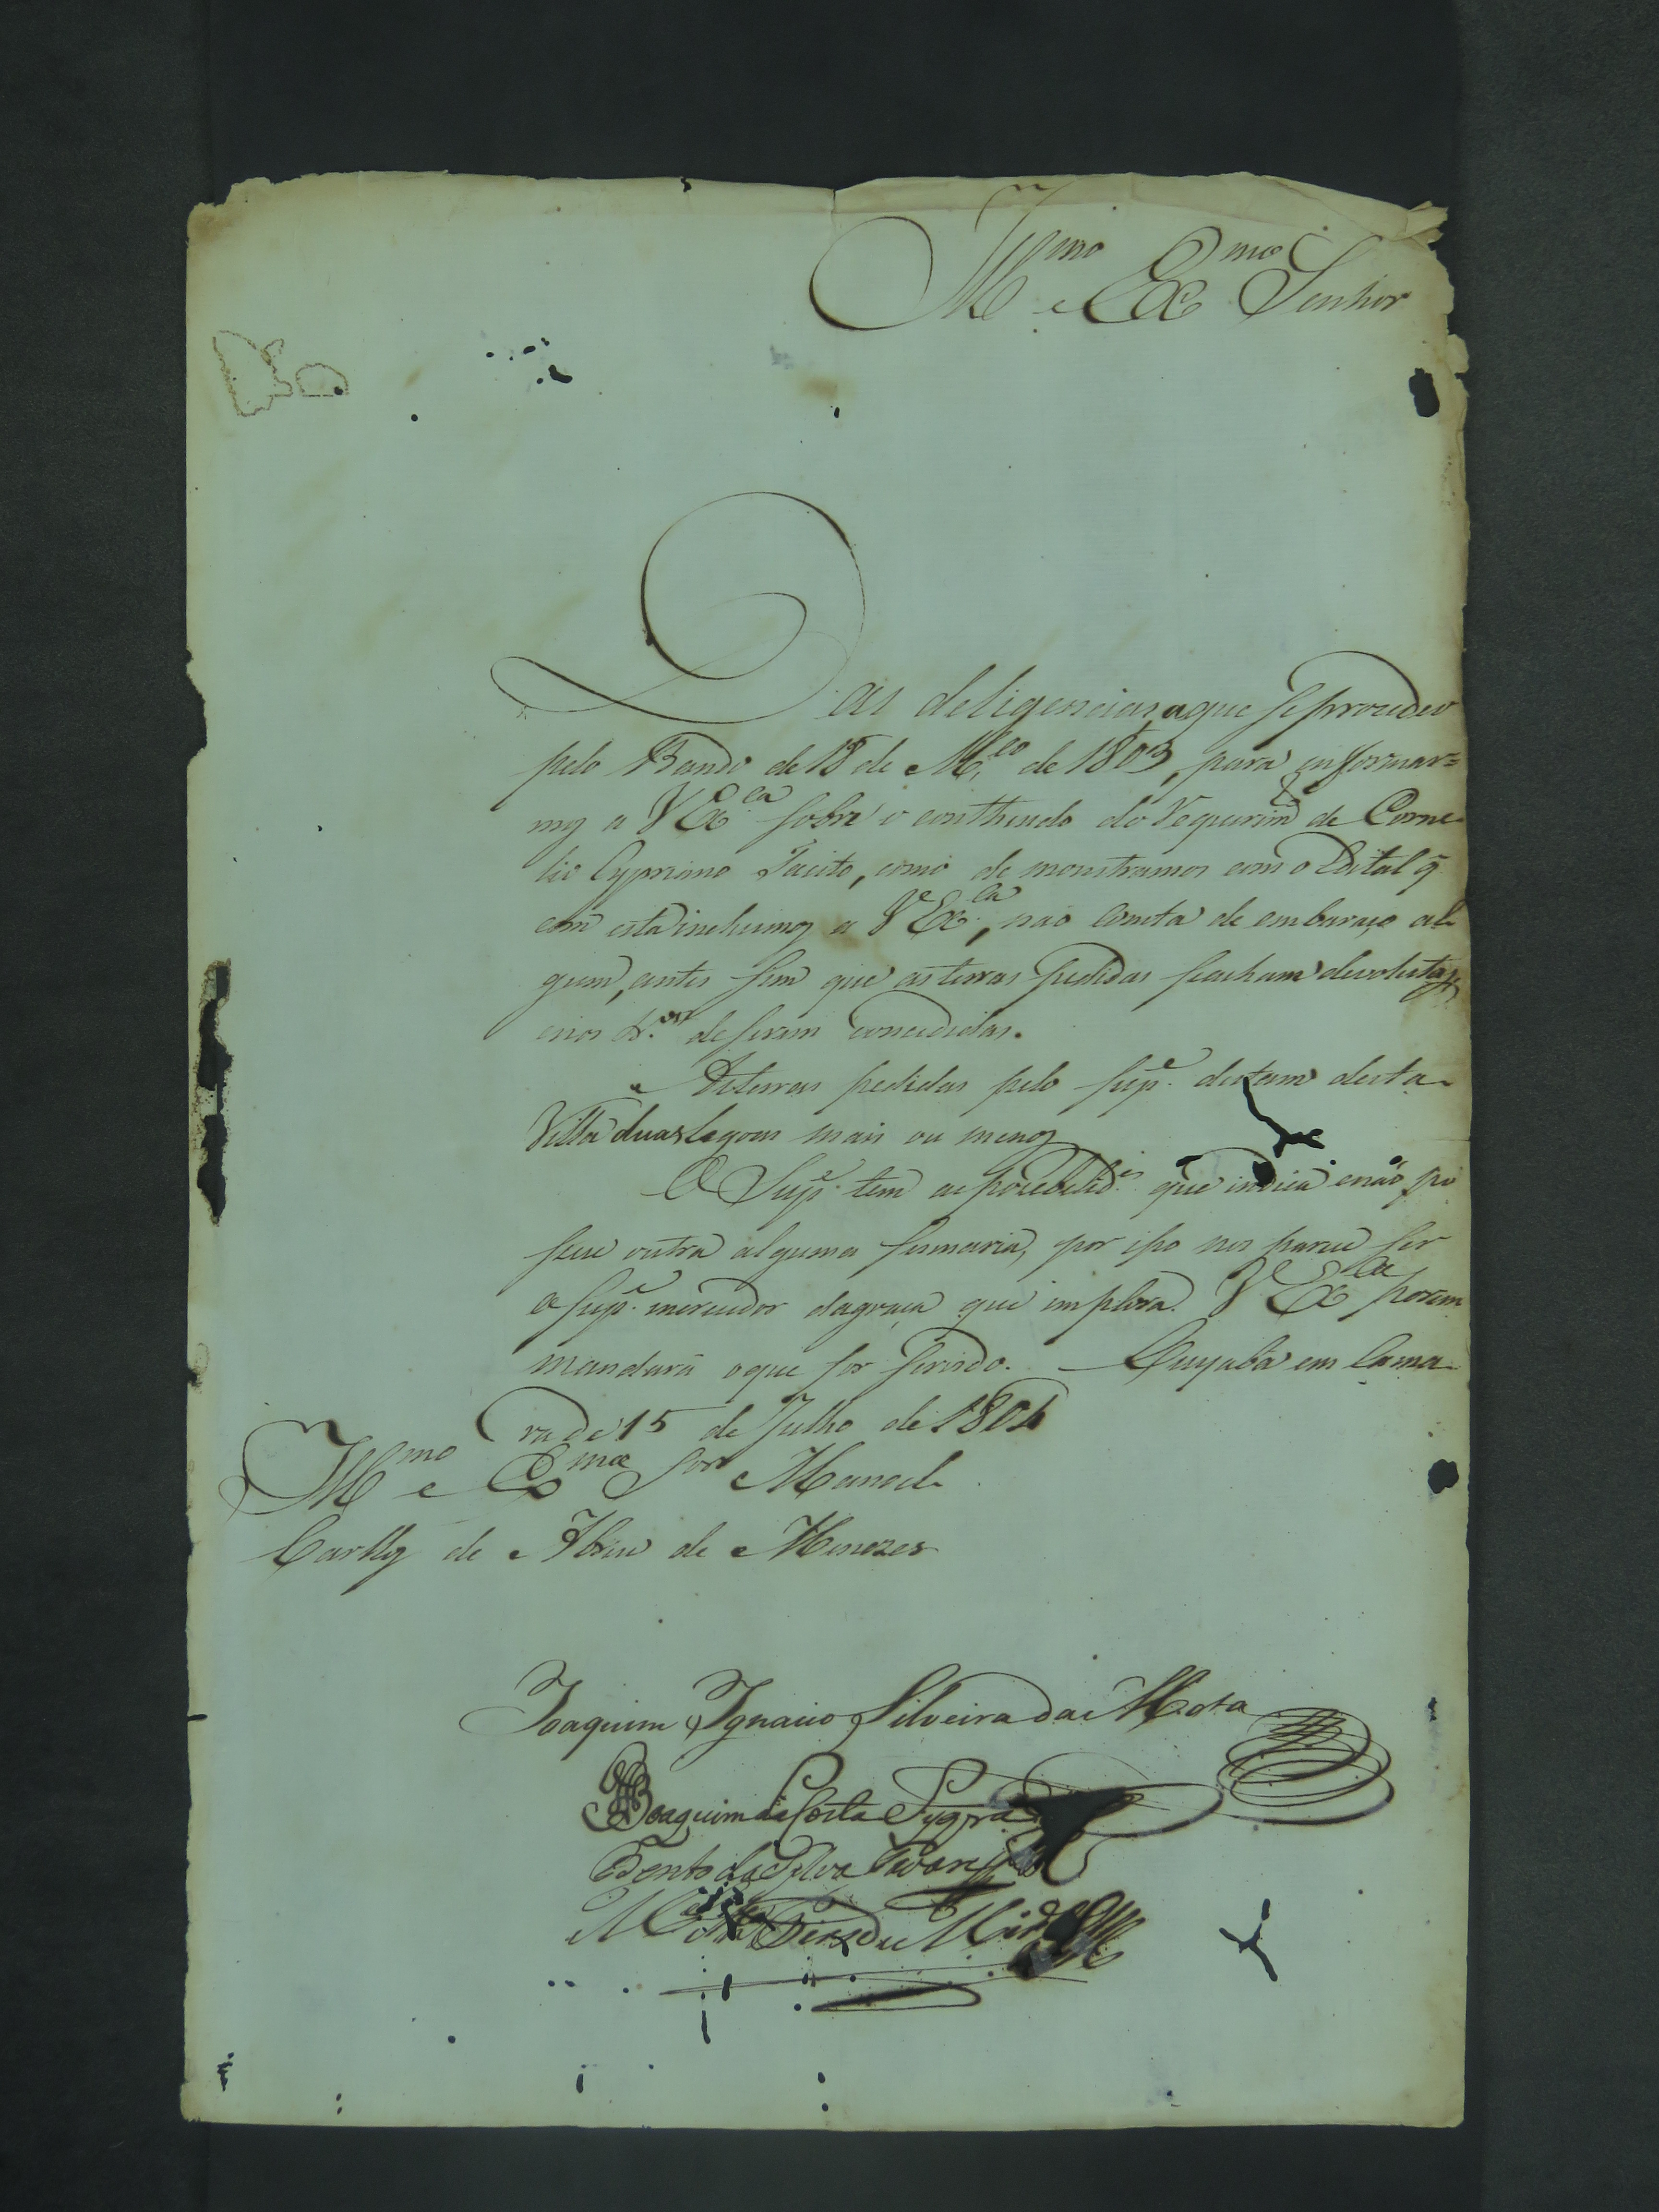 Illmo e Exmo Senhor
Das deligencias, aque se procedeo
pelo Bando de 18 de M.ço de 1803, para informar=
mos a V Exca sobre o conthiudo do Requerimto de Corne-
lio Cypriano Tacito, como de monstramos com o Edital q̃
com esta incluimos a V.Exca, não Consta de embaraço al-
gum, antes sim que asterras pedidas seacham devolutas,
enos tr.os deserem concedidas.
Asterras pedidas pelo Sup.e distam desta
Villa duas legoas mais ou menos
O Sup.e tem as pocebelid.es que indica enão po
sue outra alguma sesmaria, por iso nos parece ser
o Sup.e mereceder dagraça que implora. V Exca porem
mandará oque for servido. Cuyabá em Cama-
ra de 15 de Julho de 1804
Illmo e Exmo Snr Manoel
Carlos de Abreu de Menezes
Joaquim Ignacio Silveira da Mota
Joaquim da Costa Syqra
Bento da Silva Tavares
Pires de